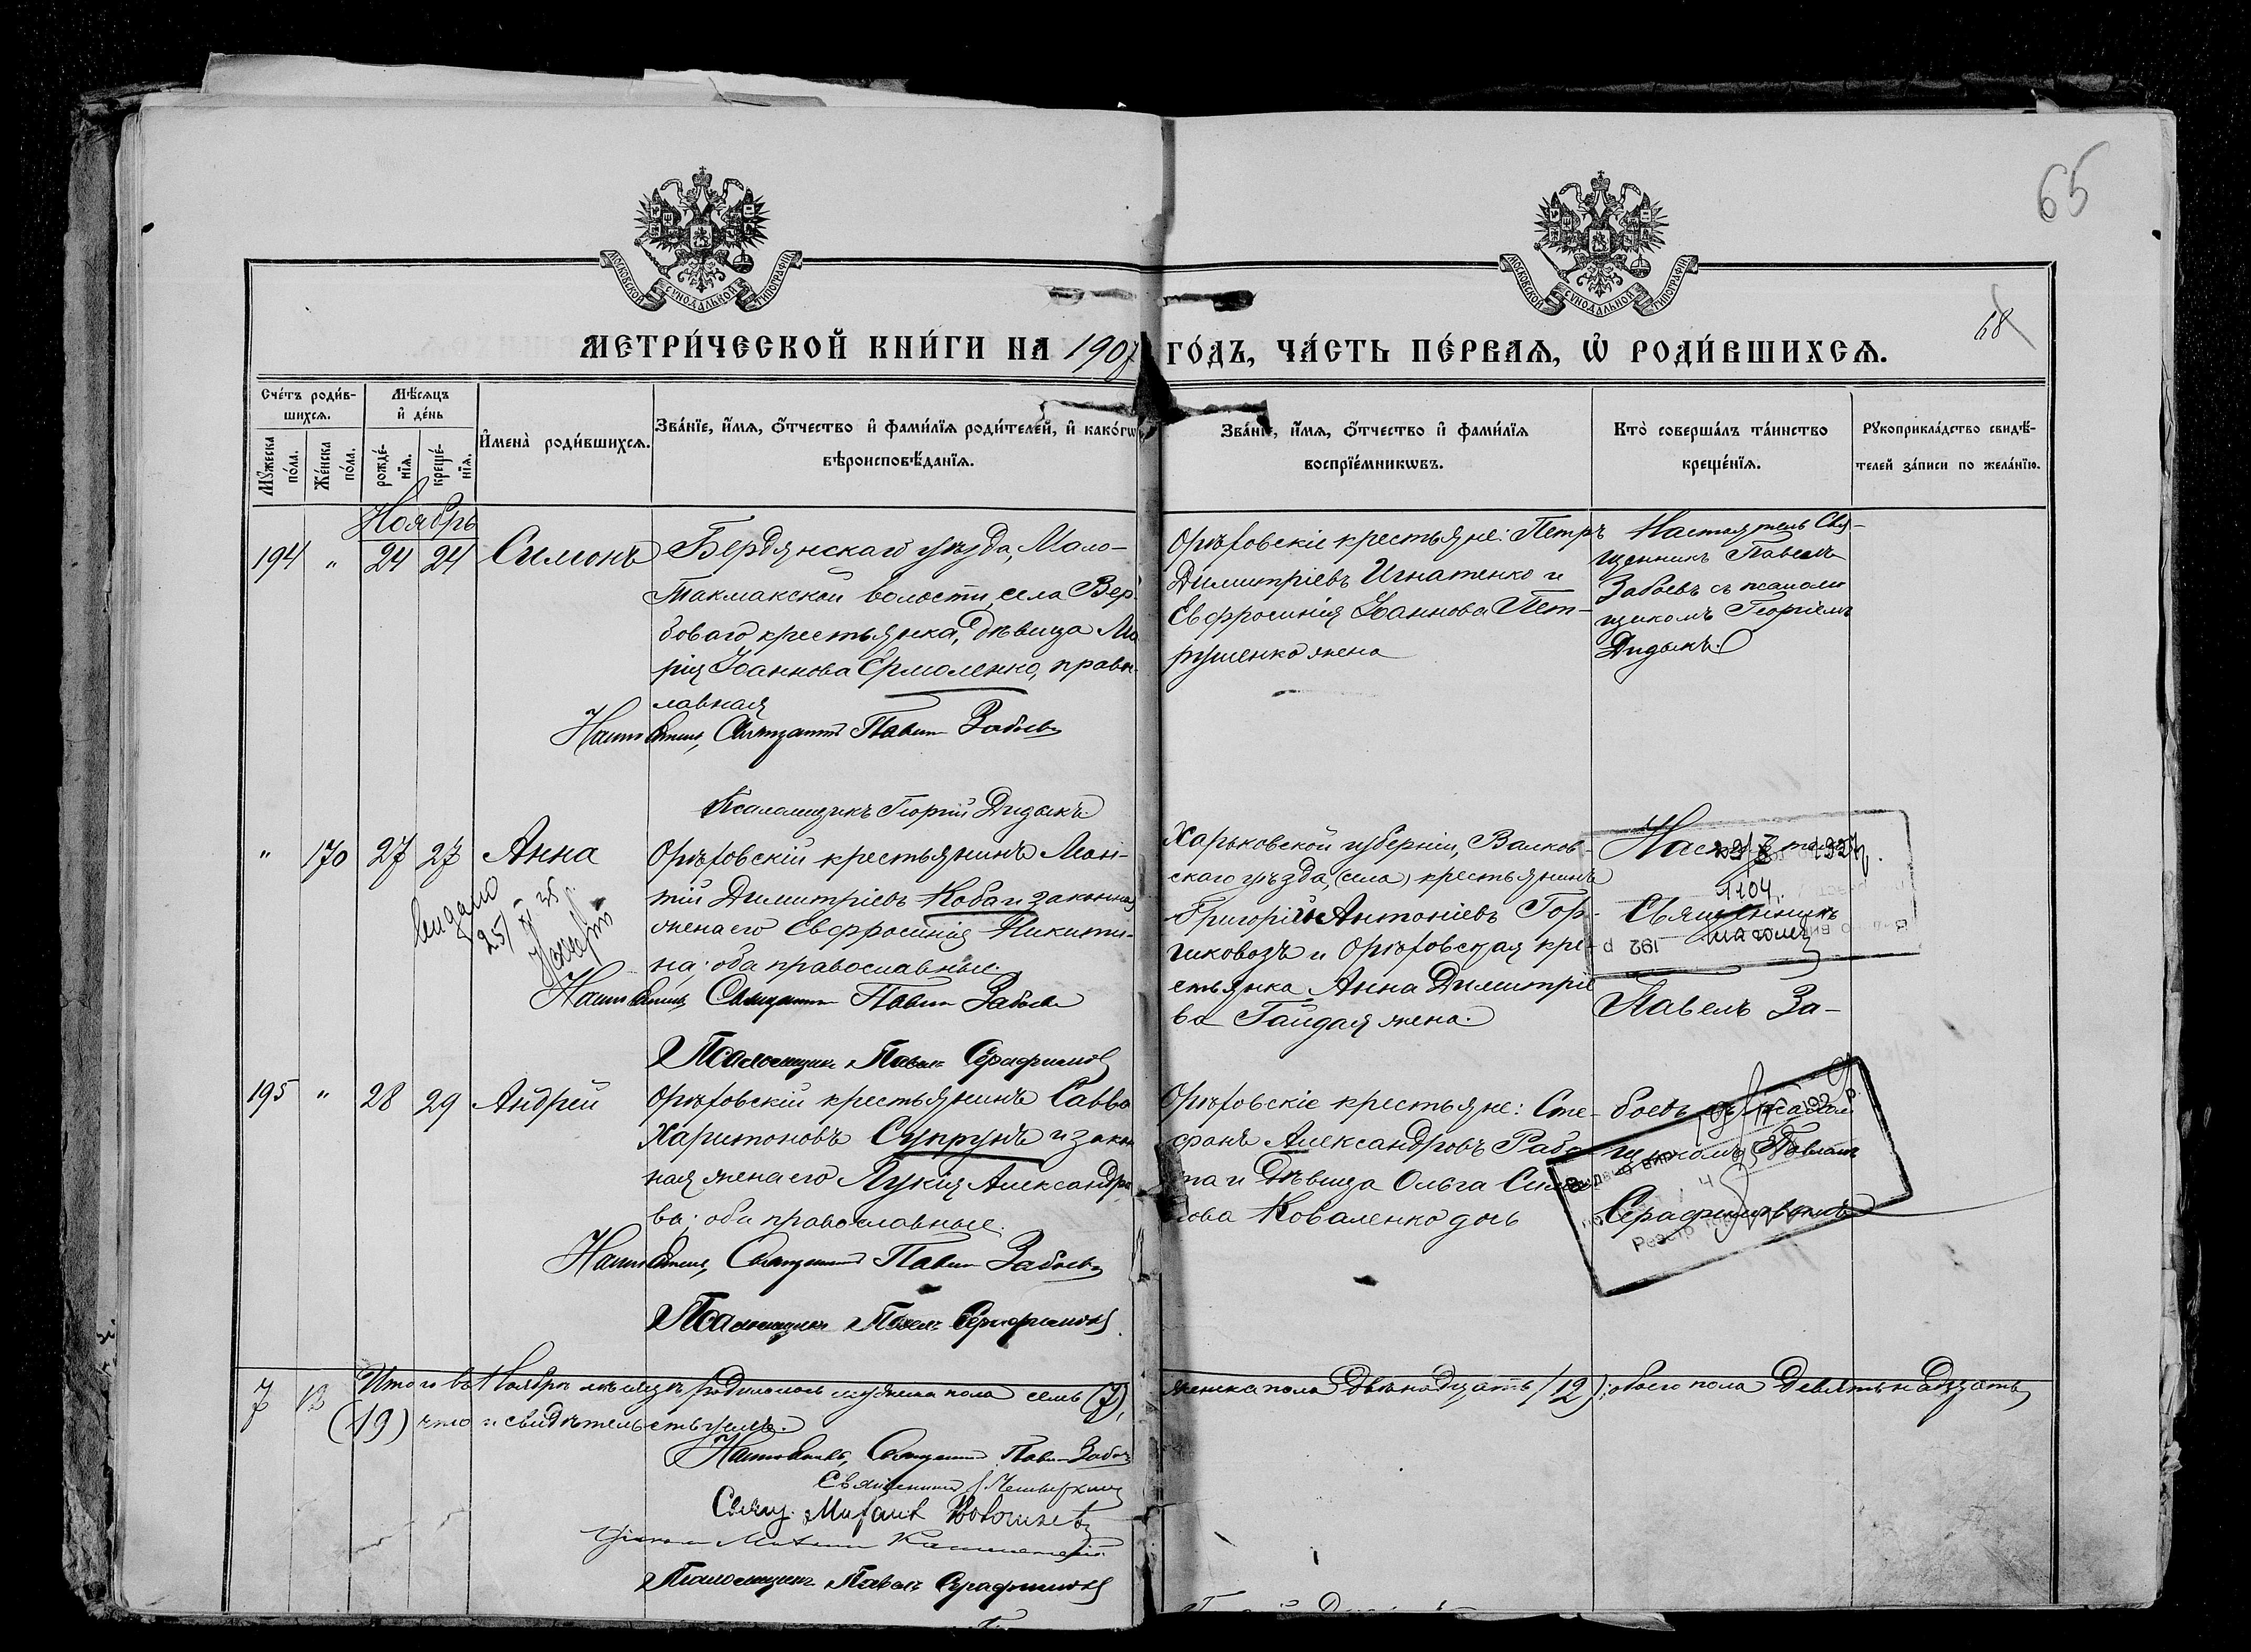 65
68
МОСКОВСКОЙ СѴНОДАЛЬНОЙ ТИПОГРАФІИ
МОСКОВСКОЙ СѴНОДАЛЬНОЙ ТИПОГРАФІИ
МЕТРИ́ЧЕСКОЙ КНИ́ГИ НА 1907 ГО́ДЪ, ЧА́СТЬ ПЕ́РВАѦ, Ѡ РОДИ́ВШИХСѦ.
Сче́тъ роди́в-
шихсѧ.
Мꙋжеска по́ла.
Же́нска по́ла.
Мѣ́сѧцъ
и де́нь
рожде́-
нїѧ.
креще́-
нїѧ.
Имена̀ роди́вшихсѧ.
Зва́нїе, и́мѧ, о́тчество и фами́лїѧ роди́телей, и како́гѡ
вѣроисповѣ́данїѧ.
Зва́нїе, и́мѧ, о́тчество и фами́лїѧ
воспрїе́мникѡвъ.
Кто̀ соверша́лъ та́инство
креще́нїѧ.
Рꙋкоприкла́дство свидѣ́-
телей за́писи по жела́нїю.
Ноябрь
194 " 24 24 Симонъ
Бердянскаго уѣзда, Мало-
Токмакской волости, села Вер-
боваго крестьянка, дѣвица Ма
рія Іоаннова Ермоленко, право
лавная
Настоятель, Священникъ Павелъ Забоевъ
Псаломщикъ Георгій Дидыкъ
Орѣховскіе крестьяне: Петръ
Димитріевъ Игнатенко и
Евфросинія Іоаннова Пет-
рушенко жена
Настоятель Свя-
щенникъ Павелъ
Забоевъ съ псалом
щикомъ Георгіемъ
Дидыкъ.
" 170 27 27 Анна
Орѣховскій крестьянинъ Ман-
тій Димитріевъ Коба и законная
жена его Евфросинія Никити-
на; оба православные.
Настоятель, Священникъ Павелъ Забоевъ
Псаломщикъ Павелъ Серафимовъ
Харьковской губерніи, Валков-
скаго уѣзда, (села) крестьянинъ
Григорій Антоніевъ Гор-
шковозъ и Орѣховская кре-
стьянка Анна Димитріе
ва Гайдая жена.
Настоятель
Священникъ
Павелъ За-
1104
195 " 28 29 Андрей
Орѣховскій крестьянинъ Савва
Харитоновъ Супрунъ и закон
ная жена его Лукія Александро
ва; оба православные.
Настоятель, Священникъ Павелъ Забоевъ
Псаломщикъ Павелъ Серафимовъ
Орѣховскіе крестьяне: Сте-
фанъ Александровъ Рабо
та и дѣвица Ольга Симо
нова Коваленко дочь
боевъ съ псалом
щикомъ Павломъ
Серафимовымъ
7 12 Итого въ Ноябрѣ мѣсяцѣ родилось мужеска пола семь (7), женска пола двѣнадцать (12); обоего пола девятнадцать
(19) что и свидѣтельствуемъ.
Настоятель, Священникъ Павелъ Забоевъ
Священникъ
Свящ. Михаилъ
Псаломщикъ Павелъ Серафимовъ